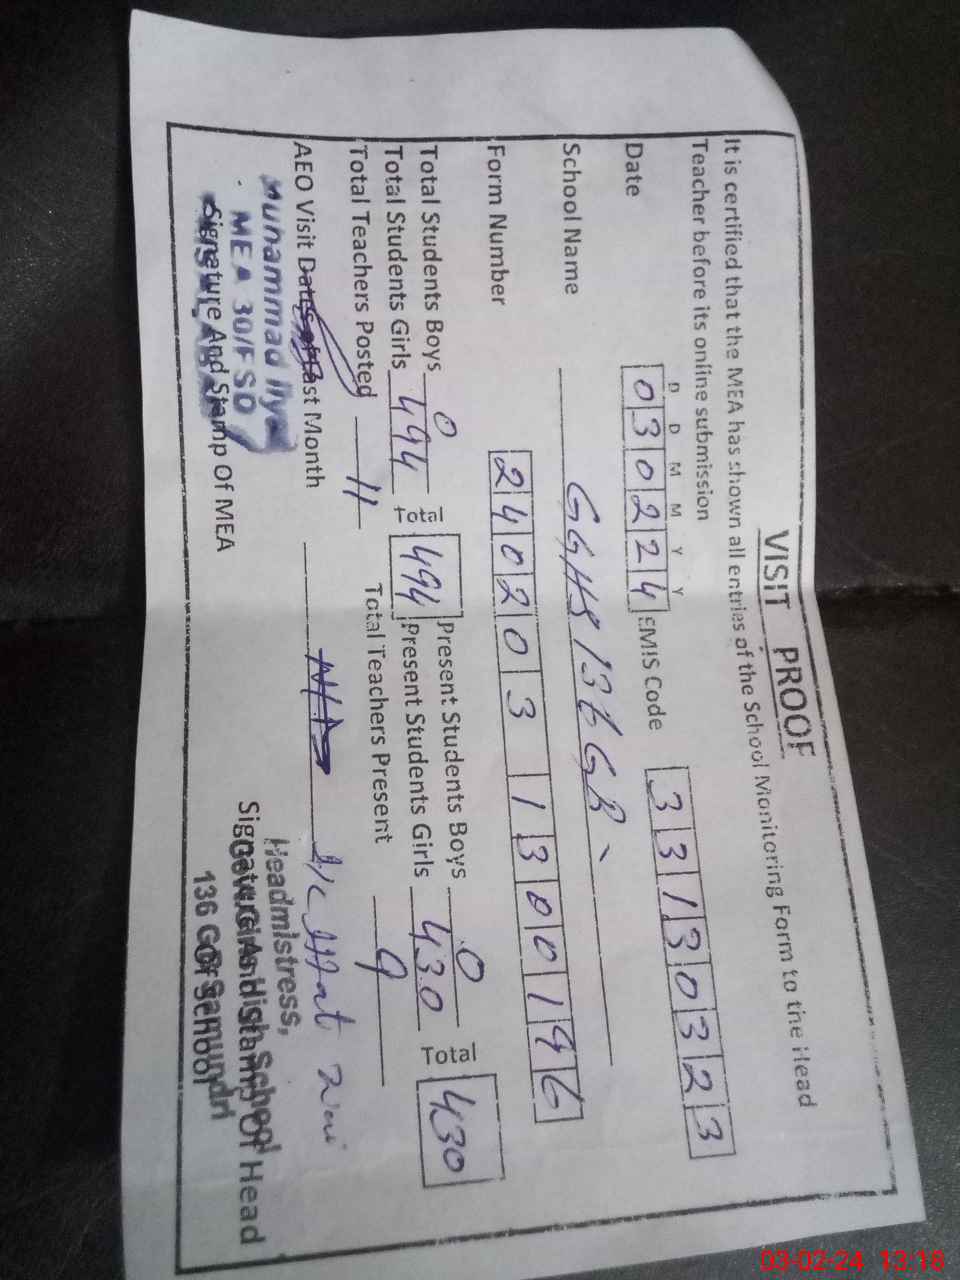 VISIT PROOF
It is certified that the MEA has shown all entries of the School Monitoring Form to the Head
Teacher before its online submission
D D M M Y Y
Date 030224 EMIS Code 33130323
School Name GGHS 136 GB
Form Number 24020313001
Total Students Boys 0 Total 494 Present Students Boys 0 Total 430
Total Students Girls 494 Present Students Girls 430
Total Teachers Posted 11 Total Teachers Present 9
AEO Visit Dates of Last Month N/A
Muhammad Ilyas
MEA 30/FSD
Signature And Stamp Of MEA
Headmistress,
Govt. Girls High School
Signature And Stamp Of Head
136 GB Samundri
Of School
03-02-24 13:18